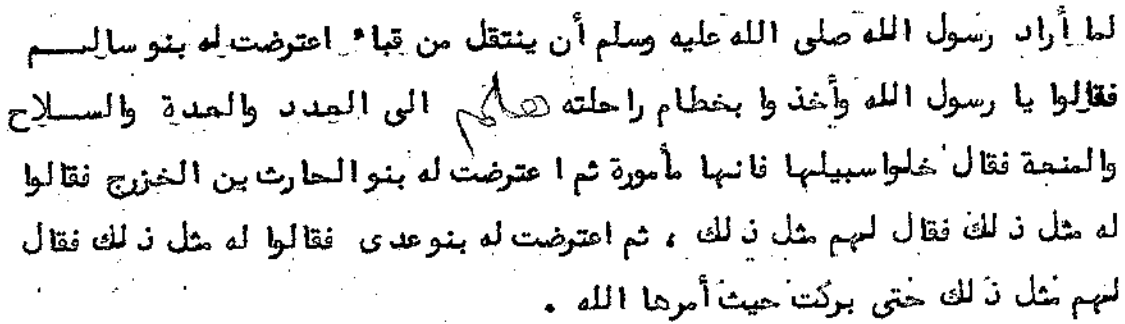 لما أراد رسول الله صلى الله عليه وسلم أن ينتقل من قباء اعترضت له بنو سالم
فقالوا يا رسول الله وأخذوا بخطام راحلته هلم الى العدد والعدة والسلاح
والمنعة فقال خلوا سبيلها فانها مأمورة ثم اعترضت له بنو الحارث بن الخزرج فقالوا
له مثل ذلك فقال لهم مثل ذلك ، ثم اعترضت له بنو عدى فقالوا له مثل ذلك فقال
لهم مثل ذلك حتى بركت حيث أمرها الله .